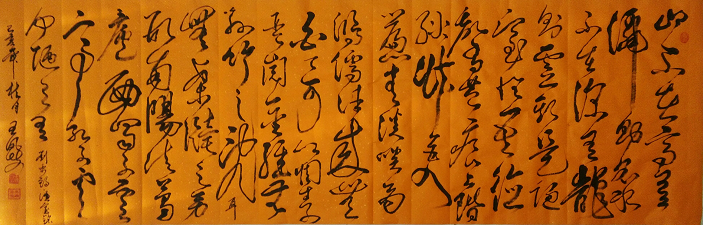 山不在高有
仙則名水
不在深有龍
則靈斯是陋
室惟吾德
馨苔痕上階
綠草色入
簾青談笑有
鴻儒往來無
白丁可以調素
琴閱金經無
絲竹之亂耳
無案牘之勞
形南陽諸葛
廬西蜀子雲
亭孔子云
何陋之有 劉禹錫陋室銘